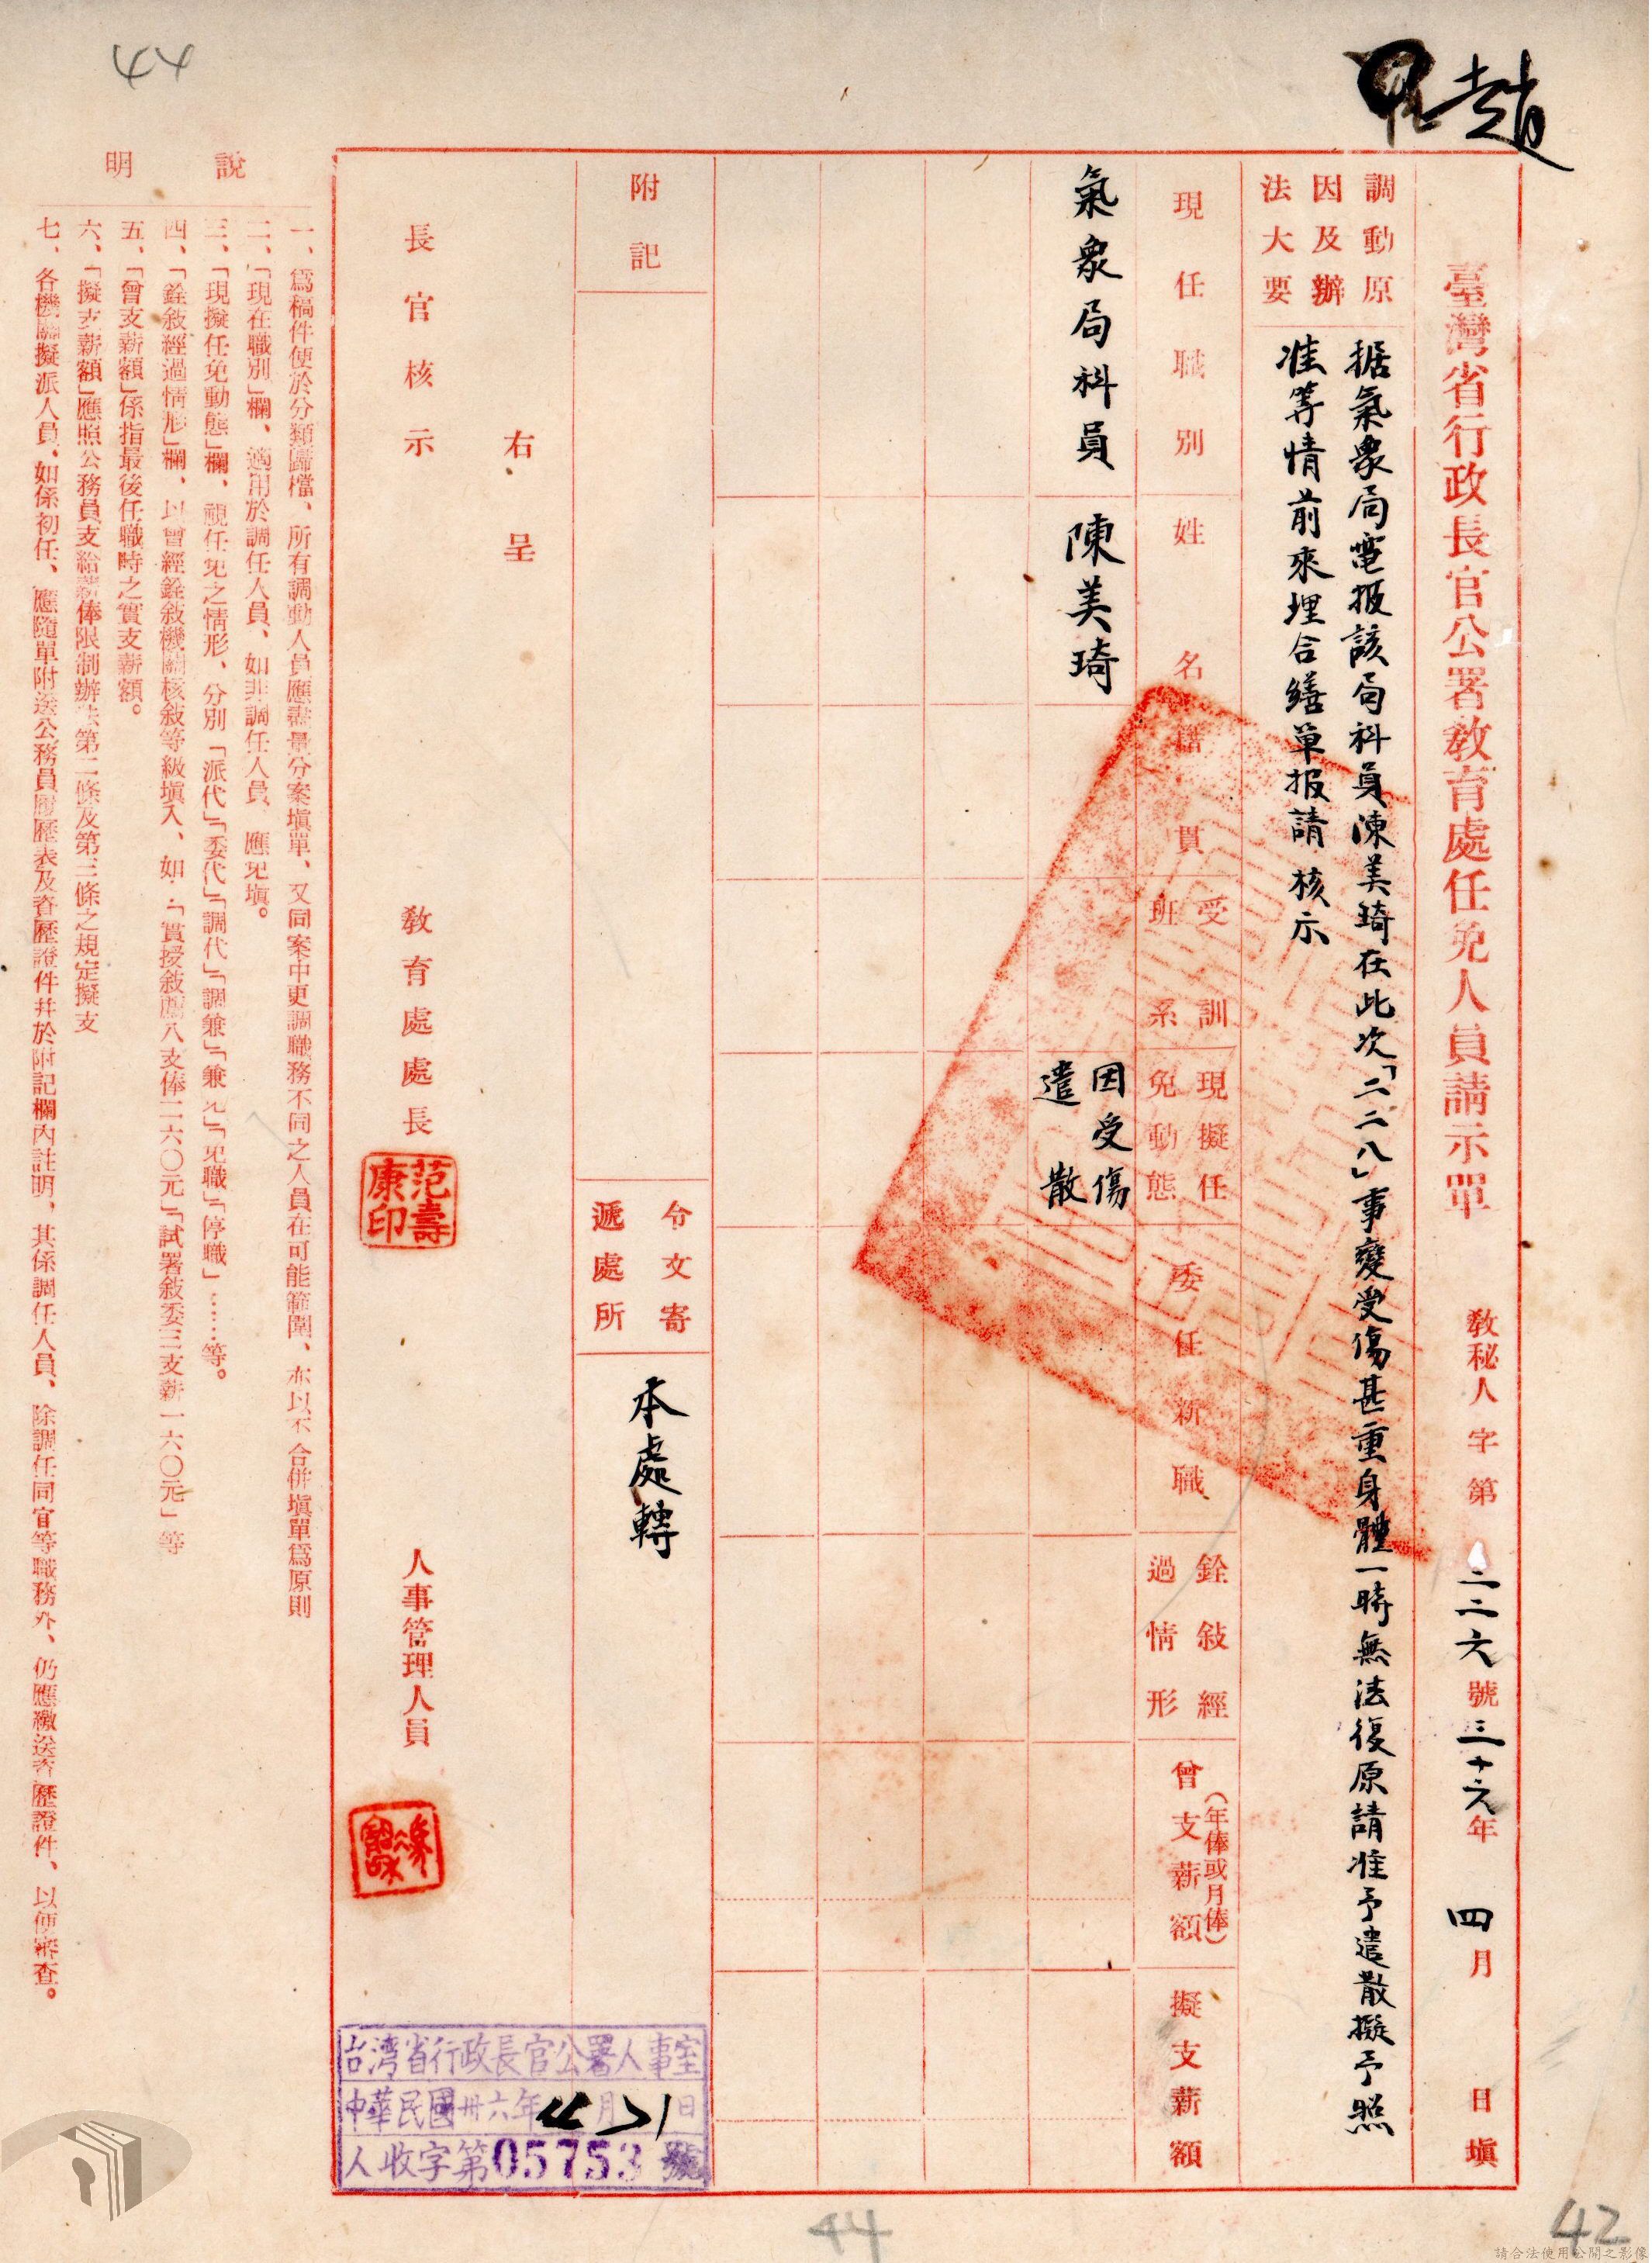 44
趙
臺灣省行政長官公署教育處任免人員請示單
教秘人字第二二六號三十六年四月 日填
調動原因及辦法大要
据氣象局電报該局科員陳美琦在此次「二二八」事變受傷甚重身體一時無法復原請准予遣散擬予照
准等情前來理合繕單报請 核示
現任職別
姓名
籍貫
受訓班系
現擬任免動態
委任新職
銓敍經過情形
曾支薪額(年俸或月俸)
擬支薪額
氣象局科員
陳美琦
因受傷
遣散
附記
令文寄遞處所
本處轉
右呈
長官核示
教育處處長
范壽康印
人事管理人員
台灣省行政長官公署人事室
中華民國卅六年 月 日
人收字第05753號
說明
一、爲稿件便於分類歸檔、所有調動人員應盡量分案填單、又同案中更調職務不同之人員在可能範圍、亦以不合併填單爲原則
二、「現在職別」欄、適用於調任人員、如非調任人員、應免填。
三、「現擬任免動態」欄、視任免之情形、分別「派代」「委代」「調代」「調兼」「兼免」「免職」「停職」……等。
四、「銓敍經過情形」欄、以曾經銓敍機關核敍等級填入、如:「實授敍薦八支俸二六〇元」「試署敍委三支薪一六〇元」等
五、「曾支薪額」係指最後任職時之實支薪額。
六、「擬支薪額」應照公務員支給薪俸限制辦法第二條及第三條之規定擬支
七、各機關擬派人員、如係初任、應隨單附送公務員履歷表及資歷證件并於附記欄內註明、其係調任人員、除調任同官等職務外、仍應繳送資歷證件、以便審查。
44
42
請合法使用公開之影像